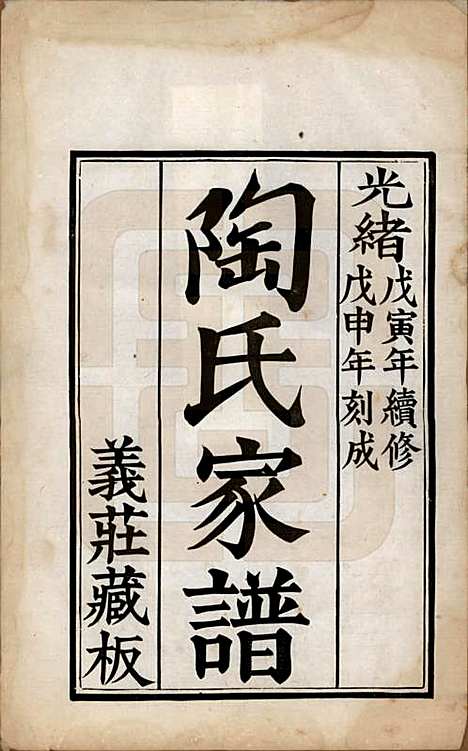 光緒戊寅年續修
戊申年刻成
陶氏家譜
義莊藏板